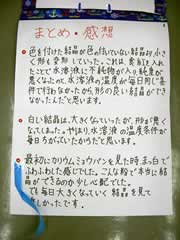 まとめ・感想
・色を付けた結晶が色が付いていない結晶が小さ
く形も変形していった。これは、食紅を入れ
たことで水溶液に不純物が入り純度が
悪くなったため、水溶液の温度が毎日同じ条
件で行われなかったから、形の良い結晶がで
きなかったんだと思います。
・白い結晶は、大きくなっていったが、形が悪く
なってしまった。やはり、水溶液の温度条件が
毎日ちがっていたからだと思います。
・最初にカリウムミョウバンを見た時、まっ白で
ふわふわした感じでした。こんな粉で本当に結
晶ができるのか少し心配でした。
でも毎日大きくなっていく結晶を見て
楽しかったです。